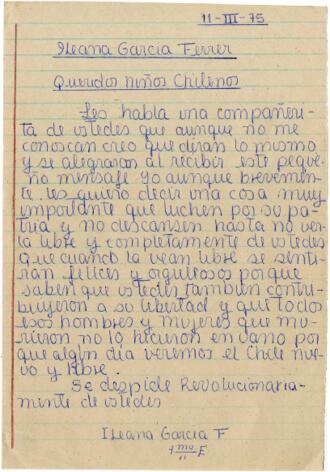 11-III-75
Ileana Garcia Ferrer
Queridos niños Chilenos
Les habla una compañeri-
ta de ustedes que aunque no me
conoscan creo que diran lo mismo
y se alegraran al recibir este peque-
ño mensaje yo aunque brevemen-
te les quiero decir una cosa muy
importante que luchen por su pa-
tria y no descansen hasta no ver-
la libre y completamente de ustedes
que cuando la vean libre se senti-
ran felices y orgullosos porque
saben que ustedes tambien contri-
buyeron a su libertad y que todos
esos hombres y mujeres que mu-
rieron no lo hicieron en vano por
que algun dia veremos el Chile nue-
vo y libre.
Se despide Revolucionaria-
mente de ustedes
Ileana Garcia F